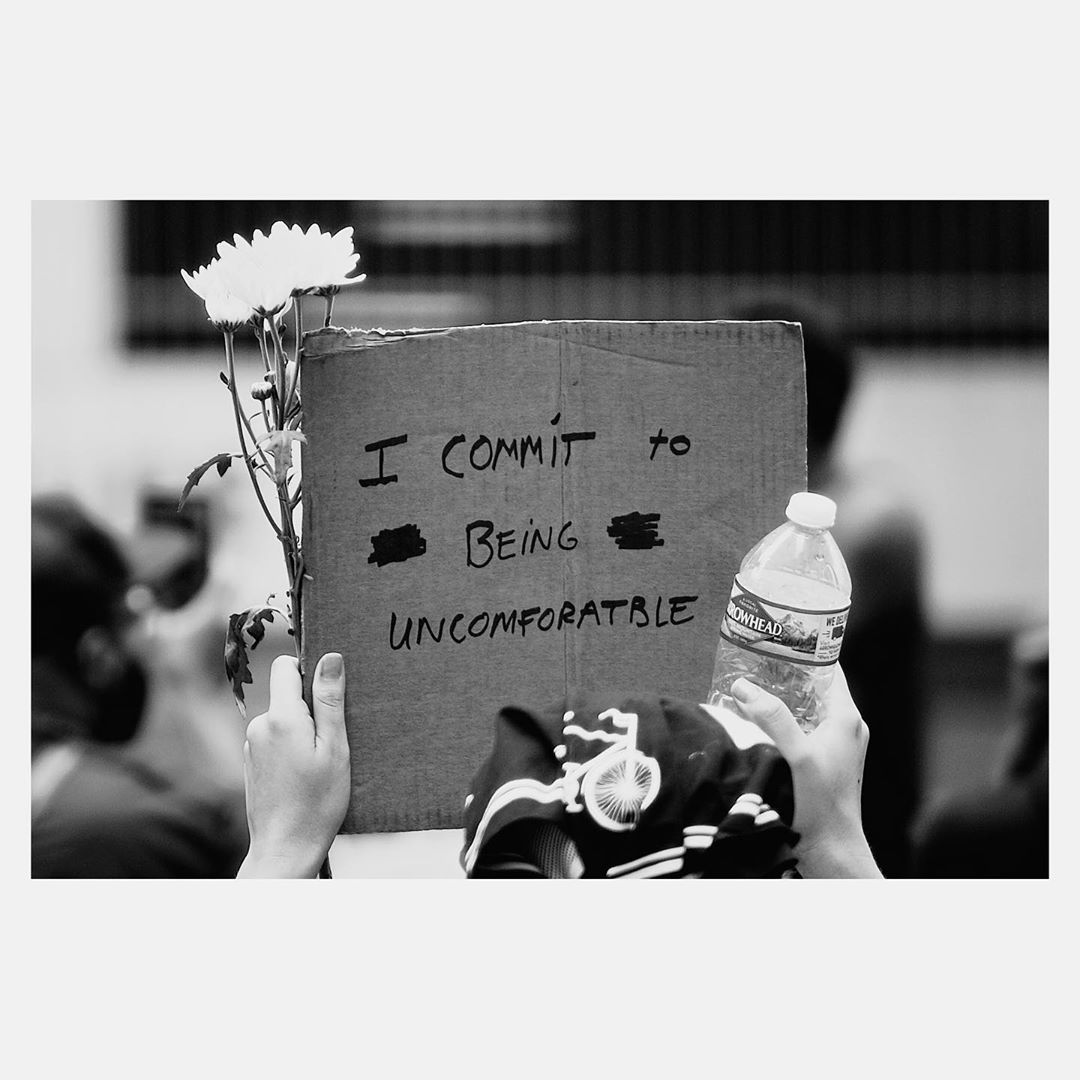 I COMMIT to
BEING
UNCOMFORATBLE
ROWHEAD
WE DEL